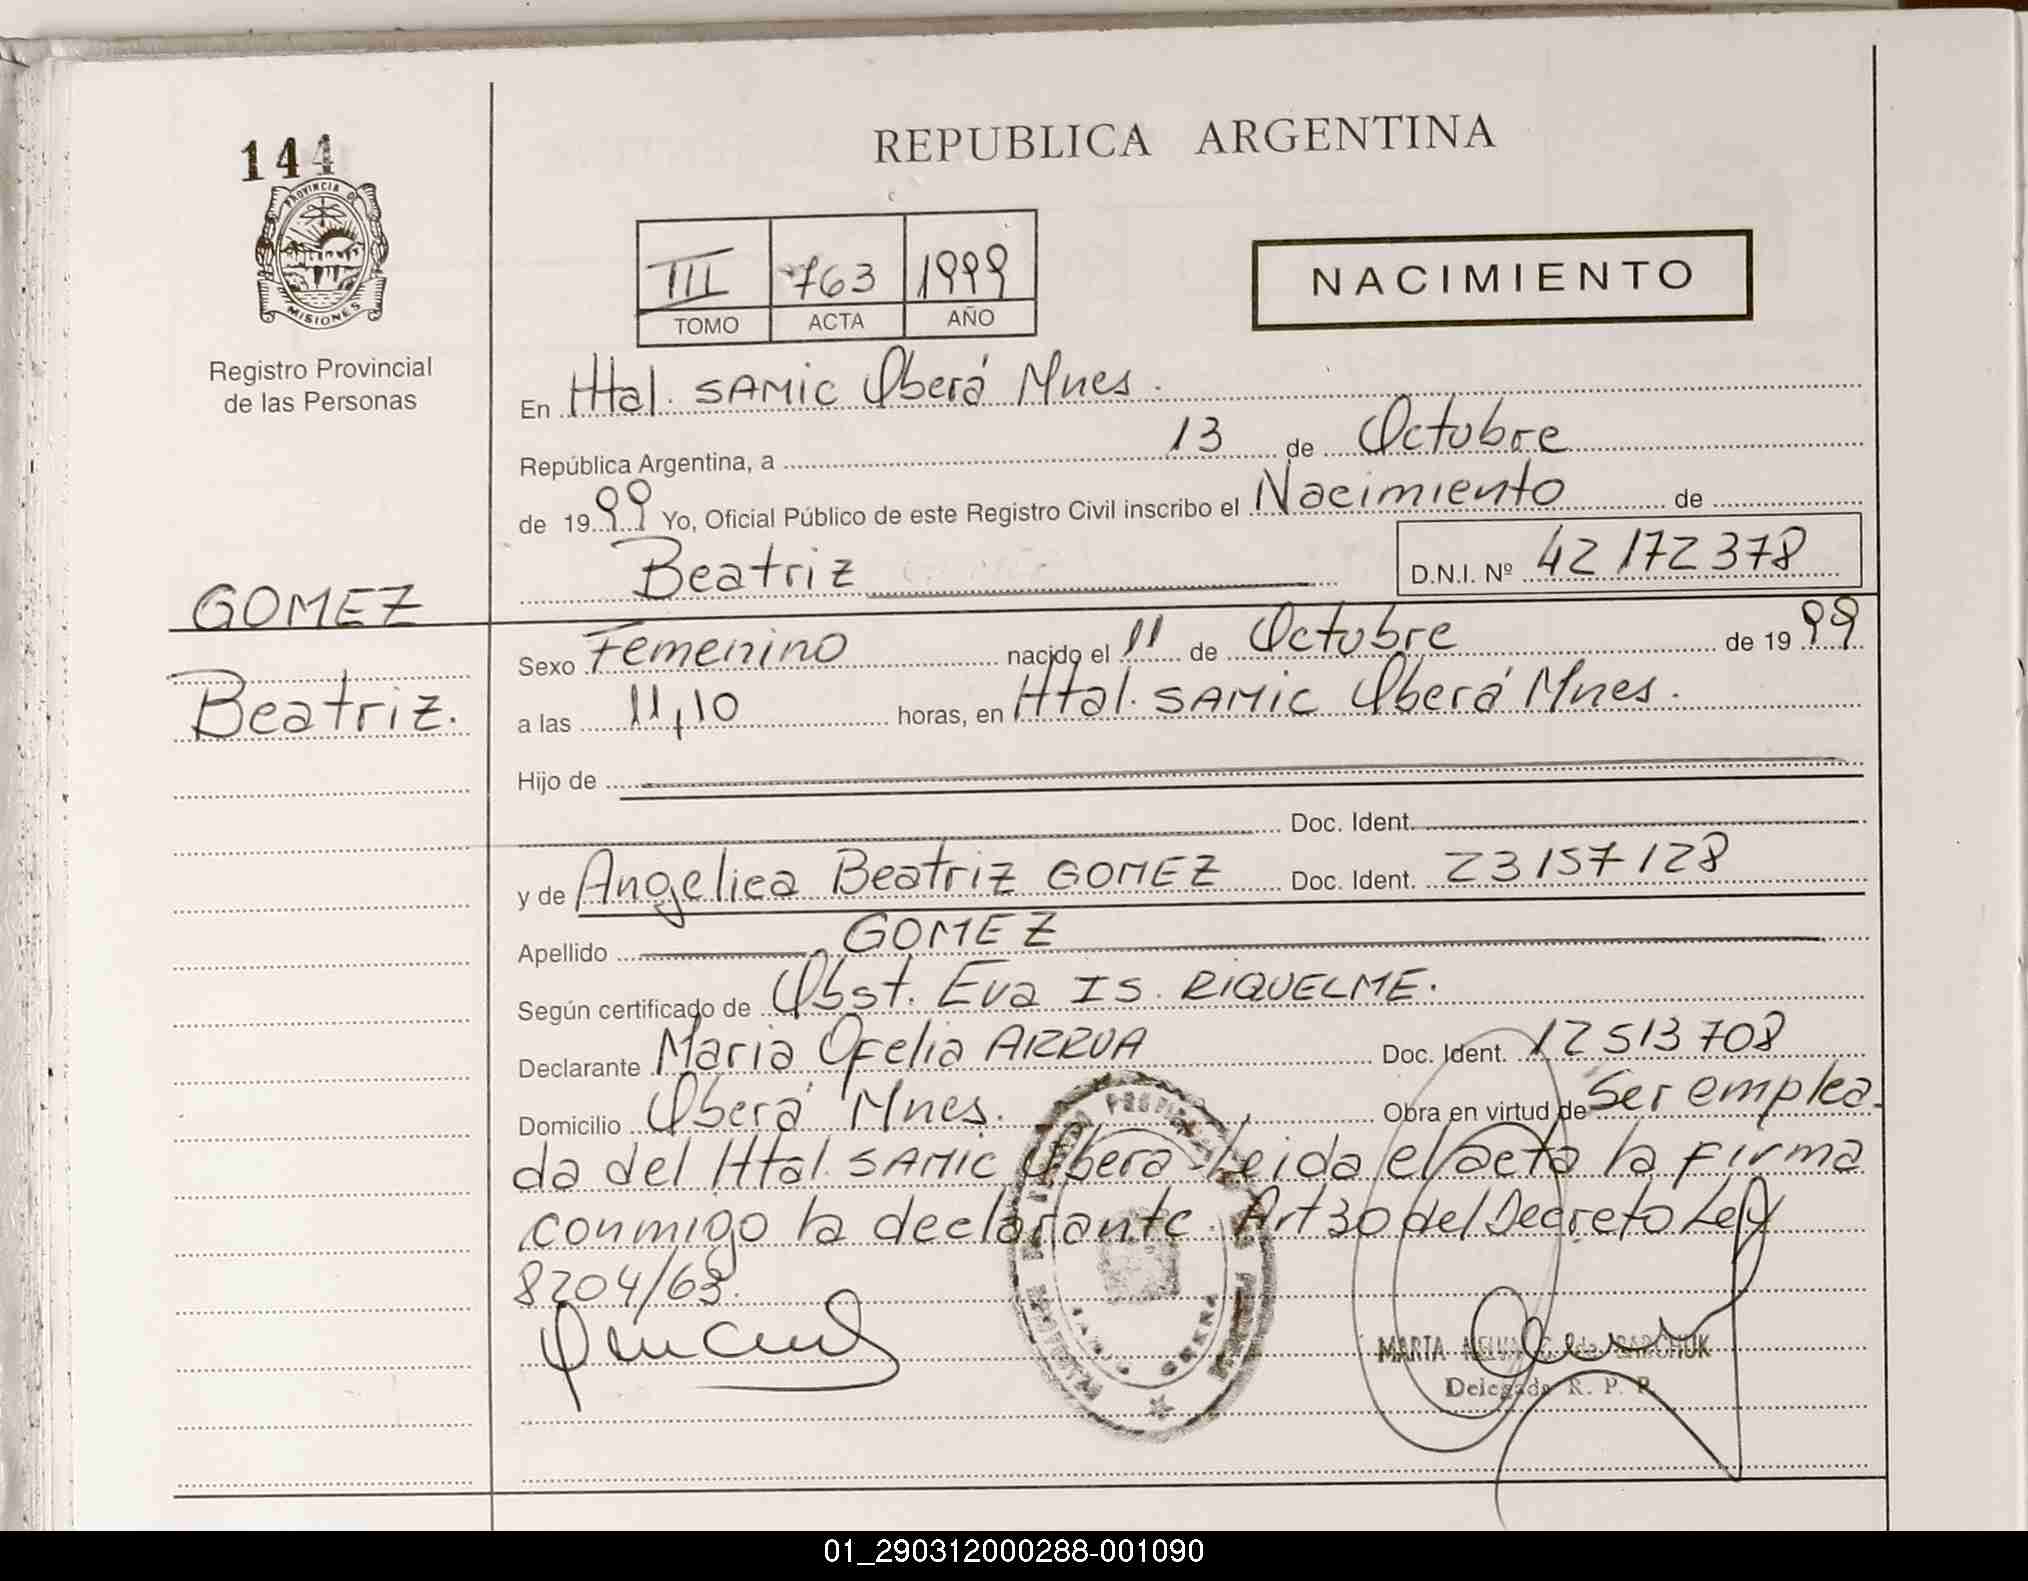 144
PROVINCIA DE
MISIONES
Registro Provincial
de las Personas
REPUBLICA ARGENTINA
III 763 1999
TOMO ACTA AÑO
NACIMIENTO
En Htal. SAMIC Oberá Mnes.
República Argentina, a 13 de Octubre
de 1999 Yo, Oficial Público de este Registro Civil inscribo el Nacimiento de
Beatriz D.N.I. Nº 42172378
GOMEZ
Beatriz.
Sexo Femenino nacido el 11 de Octubre de 1999
a las 11,10 horas, en Htal. SAMIC Oberá Mnes.
Hijo de
Doc. Ident.
y de Angelica Beatriz GOMEZ Doc. Ident. 23157128
Apellido GOMEZ
Según certificado de Obst. Eva Is. RIQUELME.
Declarante Maria Ofelia ARRUA Doc. Ident. 12513708
Domicilio Oberá Mnes. Obra en virtud de Ser emplea
da del Htal. SAMIC Oberá Leida el acta la firma
conmigo la declarante. Art 30 del Decreto Ley
8204/63.
MARTA
Delegada R. P. P.
OBERA
01_290312000288-001090